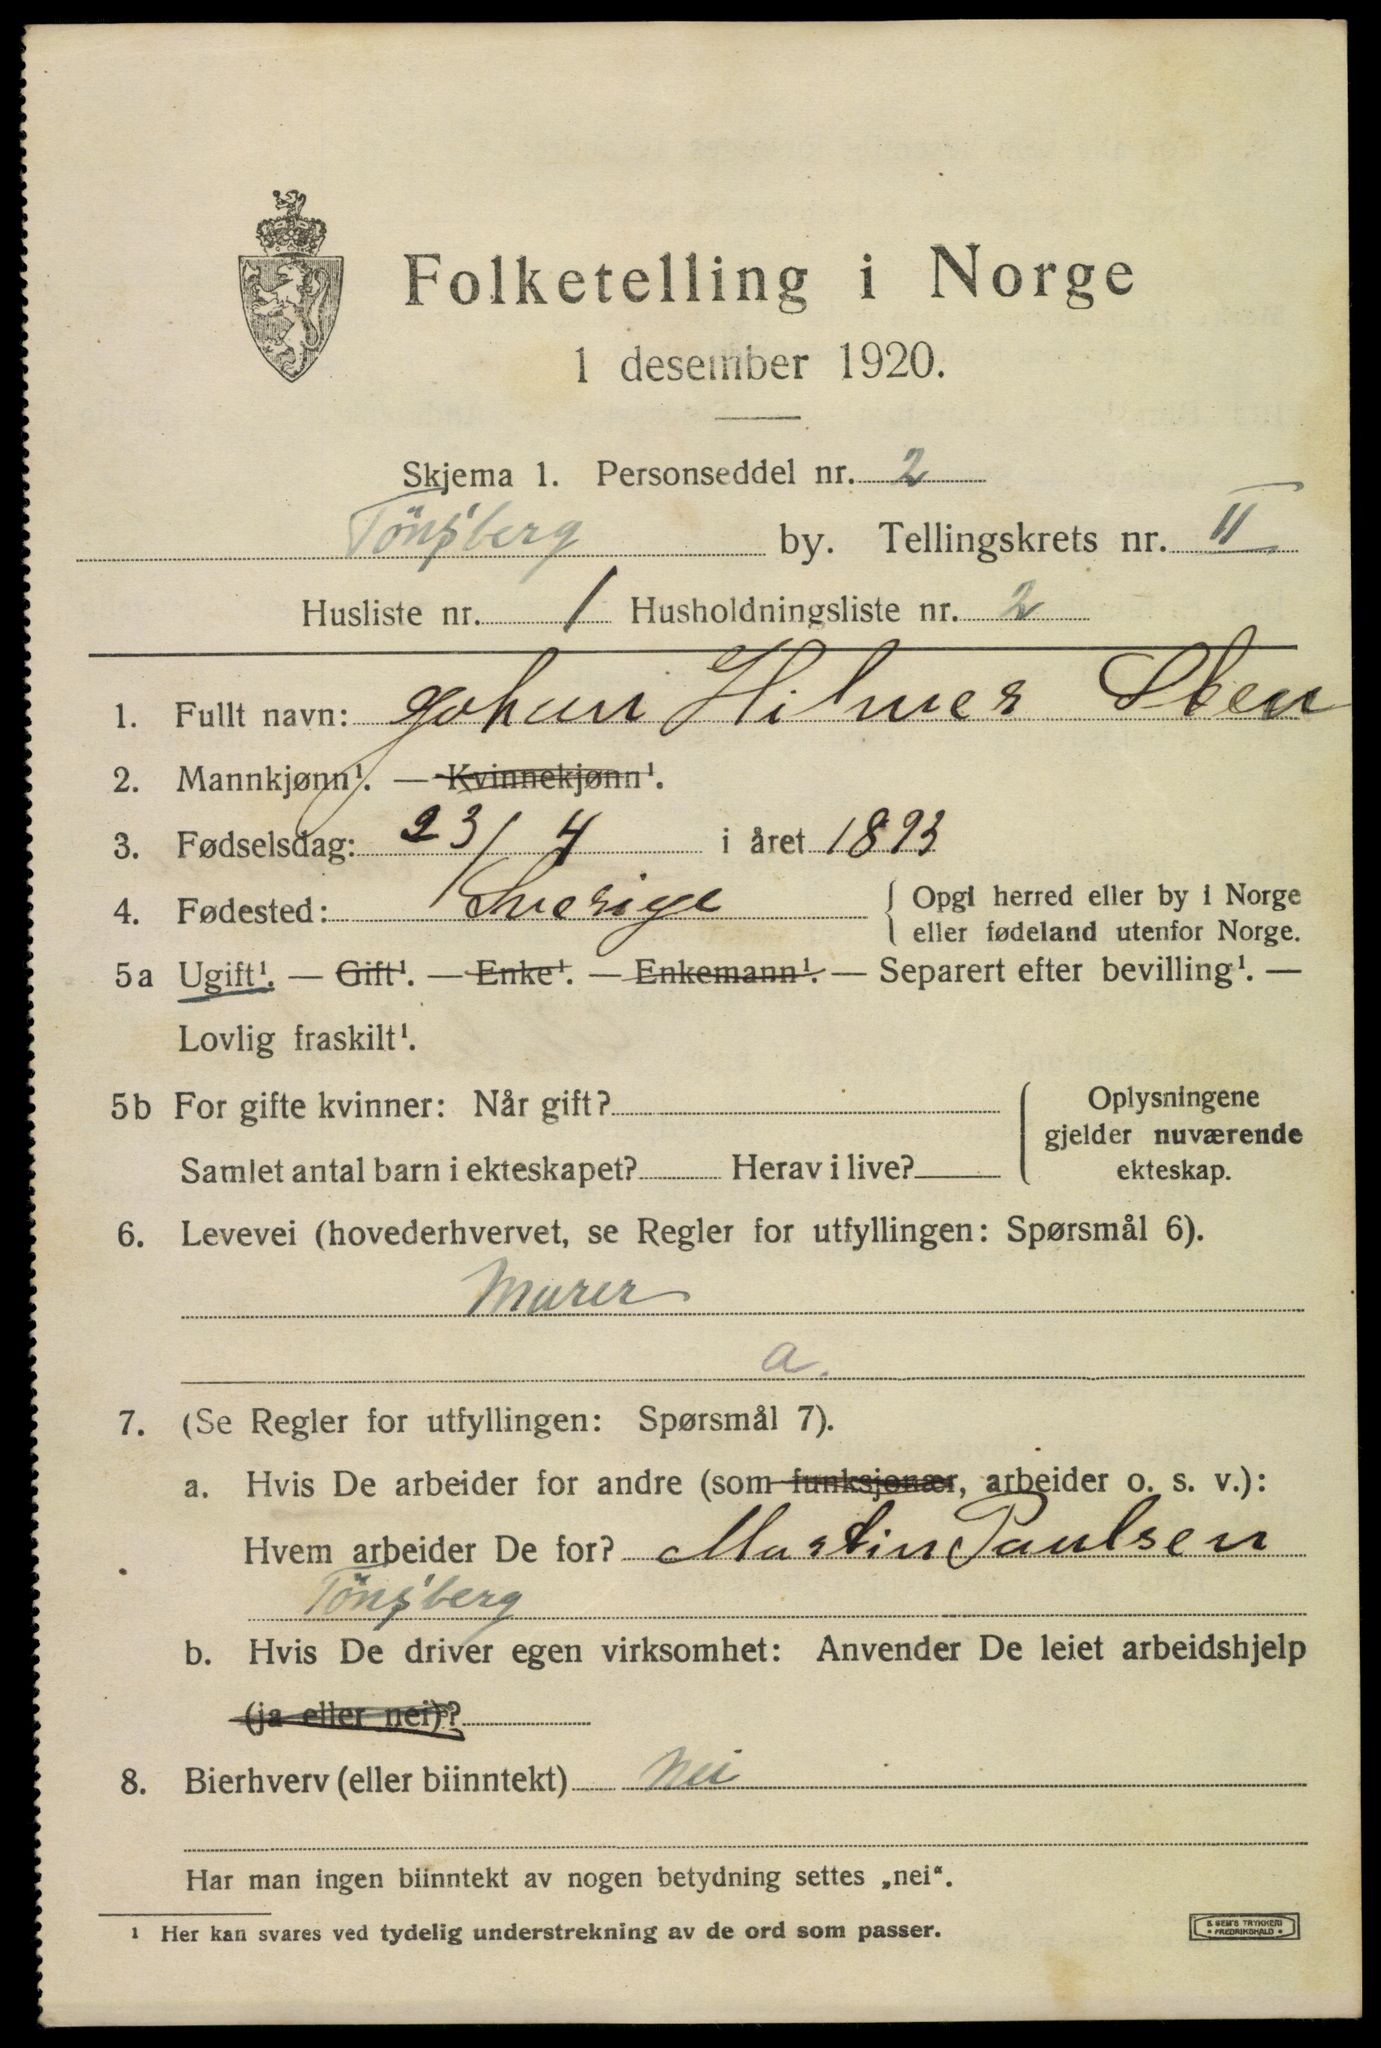 Folketelling i Norge
1 desember 1920.
Skjema 1. Personseddel nr. 2
Tönsberg by. Tellingskrets nr. II
Husliste nr. 1 Husholdningsliste nr. 2
1. Fullt navn: Johan Hilmer Sten
2. Mannkjønn¹. — Kvinnekjønn¹.
3. Fødselsdag: 23/4 i året 1893
4. Fødested: Sverige { Opgi herred eller by i Norge
eller fødeland utenfor Norge.
5a Ugift¹. — Gift¹. — Enke¹. — Enkemann¹. — Separert efter bevilling¹. —
Lovlig fraskilt¹.
5b For gifte kvinner: Når gift? { Oplysningene
gjelder nuværende
Samlet antal barn i ekteskapet? Herav i live? ekteskap.
6. Levevei (hovederhvervet, se Regler for utfyllingen: Spørsmål 6).
Murer
a.
7. (Se Regler for utfyllingen: Spørsmål 7).
a. Hvis De arbeider for andre (som funksjonær, arbeider o. s. v.):
Hvem arbeider De for? Martin Paulsen
Tönsberg
b. Hvis De driver egen virksomhet: Anvender De leiet arbeidshjelp
(ja eller nei)?
8. Bierhverv (eller biinntekt) Nei
Har man ingen biinntekt av nogen betydning settes „nei“.
¹ Her kan svares ved tydelig understrekning av de ord som passer.
E. SEM'S TRYKKERI
• FREDRIKSHALD •